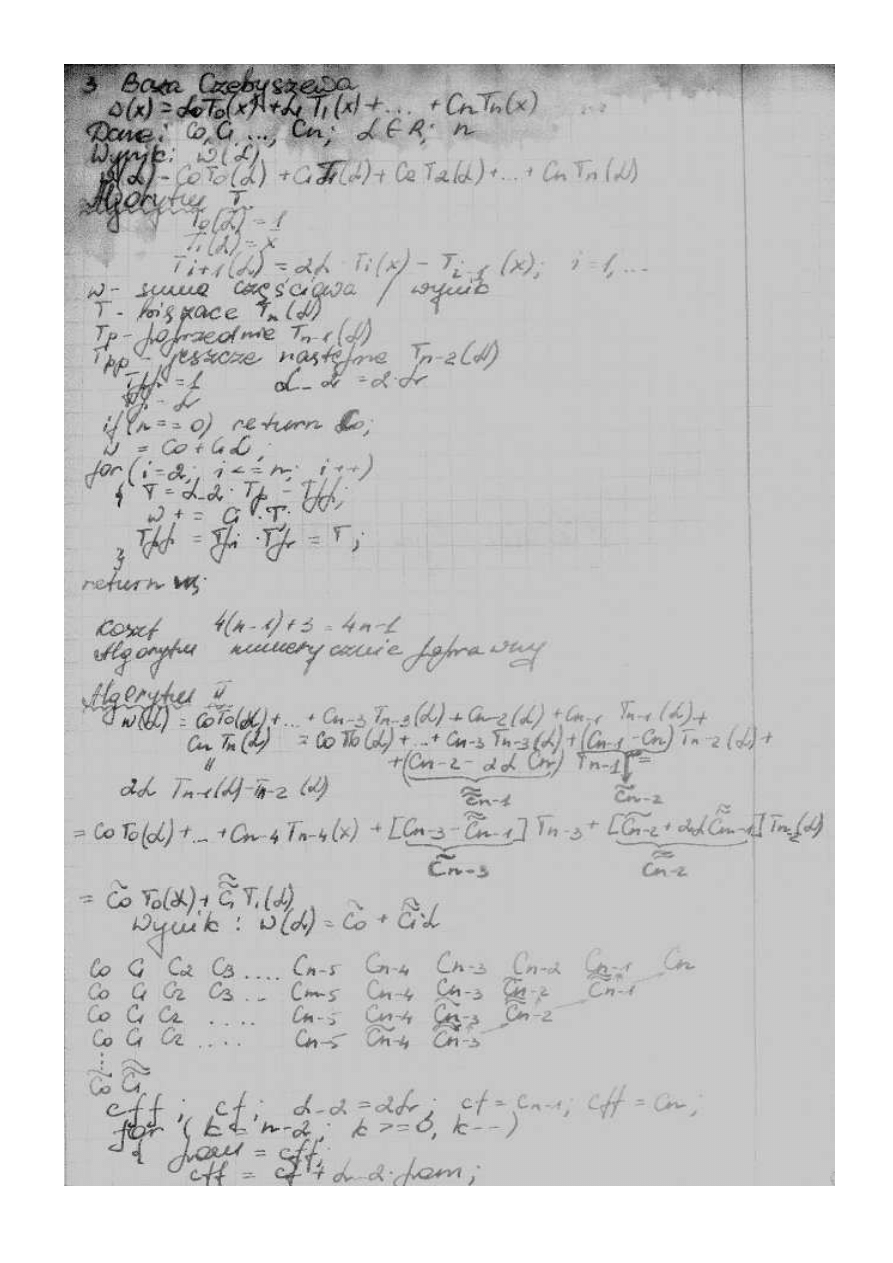 3 Baza Czebyszewa
s(x) = α₀T₀(x) + α₁T₁(x) + ... + CnTn(x)
Dane: C₀, C₁ ..., Cn; α ∈ R; n
Wynik: w(α)
w(α) - C₀T₀(α) + C₁T₁(α) + C₂T₂(α) + ... + CnTn(α)
Algorytm I
T₀(α) = 1
T₁(α) = x
Ti+1(α) = 2α · Ti(x) - Ti-1(x); i = 1, ...
w - suma częściowa / wynik
T - bieżące Tn(α)
Tp - poprzednie Tn-1(α)
Tpp - jeszcze następne Tn-2(α)
Tpp = 1 α_2 = 2·α
Tp = α
if (n == 0) return C₀;
w = C₀ + C₁α;
for (i=2; i <= n; i++)
{ T = α_2 · Tp - Tpp;
w += Ci · T;
Tpp = Tp; Tp = T;
}
return w;
Koszt 4(n-1)+3 = 4n-1
Algorytm numerycznie poprawny
Algorytm II
w(α) = C₀T₀(α) + ... + Cn-3 Tn-3(α) + Cn-2(α) + Cn-1 Tn-1(α) +
Cn Tn(α) = C₀T₀(α) + ... + Cn-3 Tn-3(α) + (Cn-1 - Cn) Tn-2(α) +
" + (Cn-2 - 2α Cn) Tn-1 =
2α Tn-1(α) - Tn-2(α) C̃̃n-1 C̃n-2
= C₀T₀(α) + ... + Cn-4Tn-4(x) + [Cn-3 - C̃̃n-1] Tn-3 + [C̃n-2 + 2αC̃̃n-1] Tn-2(α)
C̃n-3 C̃̃n-2
= C̃₀ T₀(α) + C̃̃₁ T₁(α)
Wynik: w(α) = C̃₀ + C̃̃₁α
C₀ C₁ C₂ C₃ .... Cn-5 Cn-4 Cn-3 Cn-2 Cn-1 Cn
C₀ C₁ C₂ C₃ .. Cn-5 Cn-4 Cn-3 C̃n-2 C̃̃n-1
C₀ C₁ C₂ .... Cn-5 Cn-4 C̃n-3 C̃̃n-2
C₀ C₁ C₂ .... Cn-5 C̃n-4 C̃̃n-3
...
C̃₀ C̃̃₁
cff; cf; α_2 = 2α; cf = Cn-1; cff = Cn;
for (k = n-2; k >= 0, k--)
{ pom = cff;
cff = cf + α_2·pom;